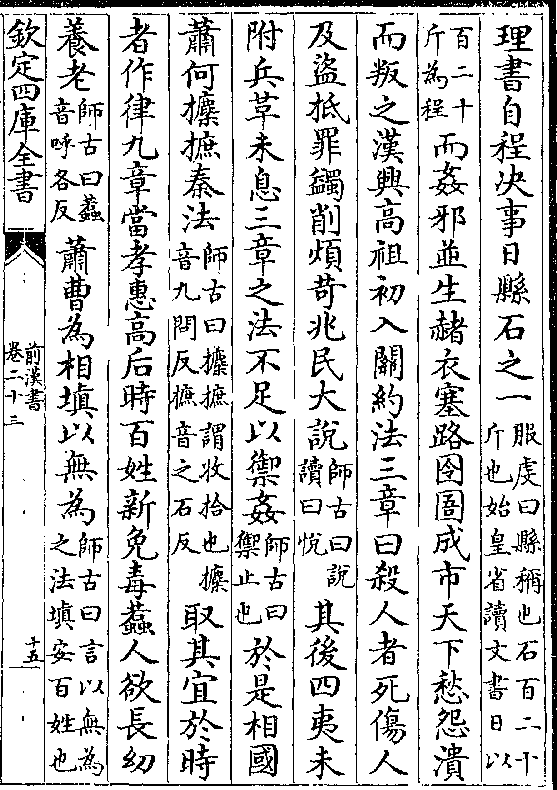 理書自程决事日縣石之一服虔曰縣稱也石百二十斤也始皇省讀文書日以
百二十斤為程而姦邪並生赭衣塞路囹圄成市天下愁怨潰
而叛之漢興高祖初入關約法三章曰殺人者死傷人
及盜抵罪蠲削煩苛兆民大説師古曰説讀曰悅其後四夷未
附兵革未息三章之法不足以禦姦師古曰禦止也於是相國
蕭何攈摭秦法師古曰攈摭謂收拾也攈音九問反摭音之石反取其宜於時
者作律九章當孝惠高后時百姓新免毒蠚人欲長幼
養老師古曰蠚音呼各反蕭曹為相填以無為師古曰言以無為之法填安百姓也
欽定四庫全書
前漢書
卷二十三
十五